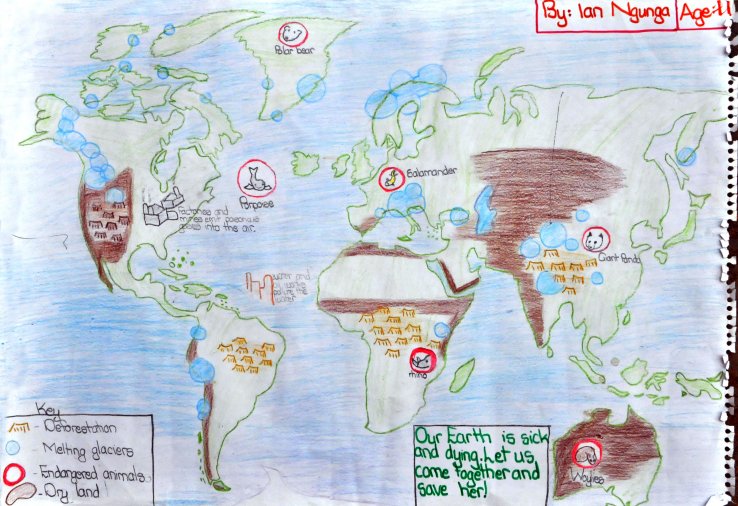 By: Ian Ngunga
Age:11
Polar bear
Porpoise
Salamander
Factories and
mines emit poisonous
gases into the air.
Giant Panda
water and
oil works
pollute the
water
rhino
Woylies
Key
- Deforestation
- Melting glaciers
- Endangered animals
- Dry land
Our Earth is sick
and dying. Let us
come together and
save her!